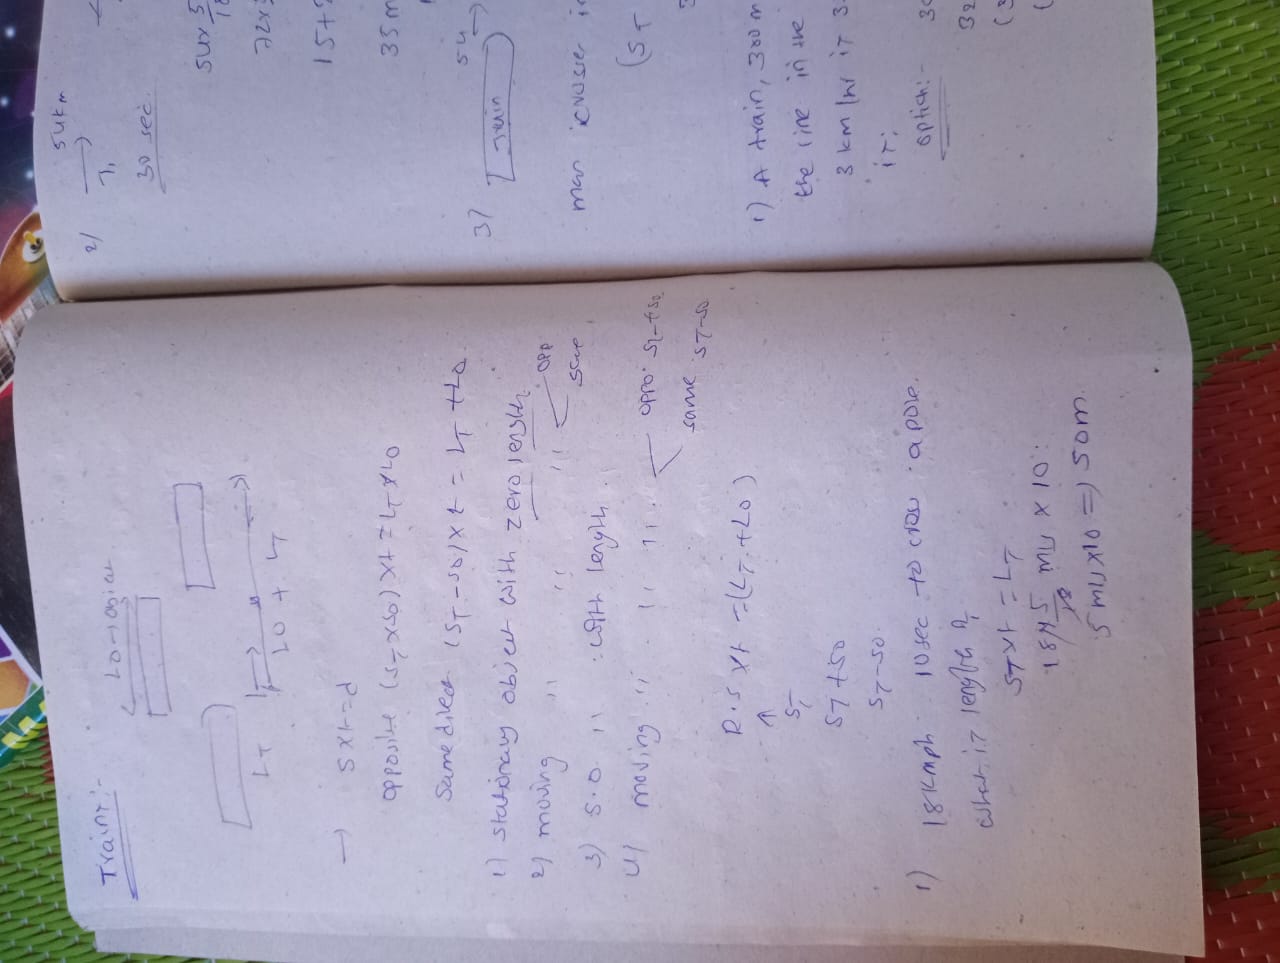 Trains:-
LO → Object
LT
LO + LT
→ S x t = d
opposite (ST x SO) x t = LT x LO
Same direct (ST - SO) x t = LT + LO
1) stationary object with zero length.
2) moving " " " " opp
same
3) S.O " with length.
4) moving " " " oppo. ST + SO
same ST - SO
R.S x t = (LT + LO)
↑
ST
ST + SO
ST - SO
1) 18 Kmph 10 sec to cross a pole.
what is length ?
ST x t = LT
5 m/s x 10 => 50m.
2) 54 km
T1
30 sec.
54 x 5
18
72 x
15 +
35 m
3) 54 →
Train
man crosses in
(ST
1) A train, 300 m
the line in the
3 km/hr it
it:
option:-